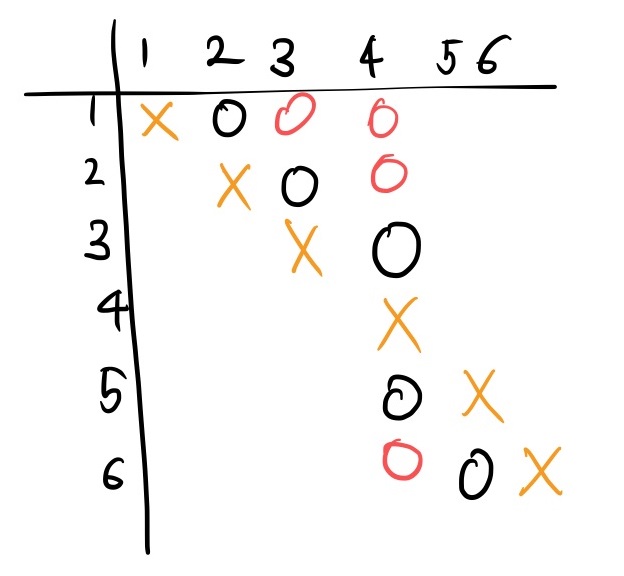 1 2 3 4 5 6
1 X O O O
2 X O O
3 X O
4 X
5 O X
6 O O X